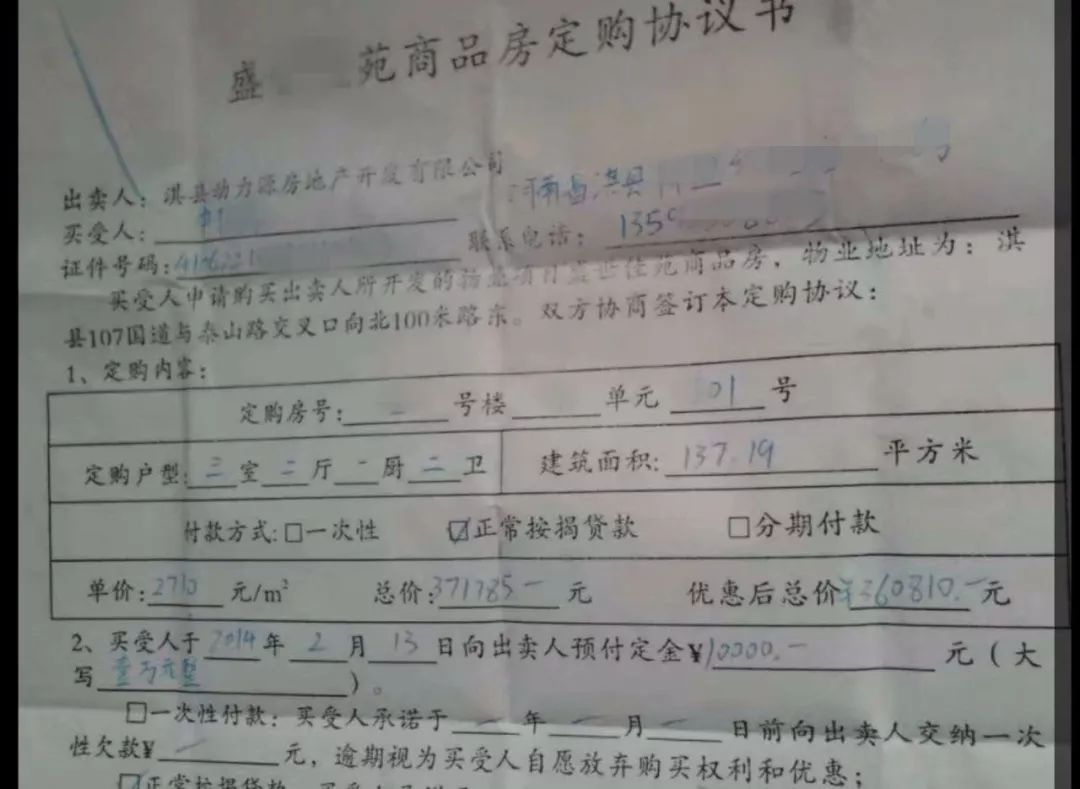 盛 苑商品房定购协议书
出卖人：淇县动力源房地产开发有限公司 河南省淇县
买受人： 联系电话：135
证件号码：
买受人申请购买出卖人所开发的物业项目盛世佳苑商品房，物业地址为：淇
县107国道与泰山路交叉口向北100米路东。双方协商签订本定购协议：
1、定购内容：
定购房号： 号楼 单元 01 号
定购户型：三室二厅一厨二卫 建筑面积：137.19 平方米
付款方式:☐一次性 ☑正常按揭贷款 ☐分期付款
单价:2710 元/m² 总价:371785.一 元 优惠后总价¥360810.一元
2、买受人于2014年2月13日向出卖人预付定金¥10000.一 元（大
写壹万元整）。
☐一次性付款：买受人承诺于一年一月一日前向出卖人交纳一次
性欠款¥一元，逾期视为买受人自愿放弃购买权利和优惠；
☑正常按揭贷款